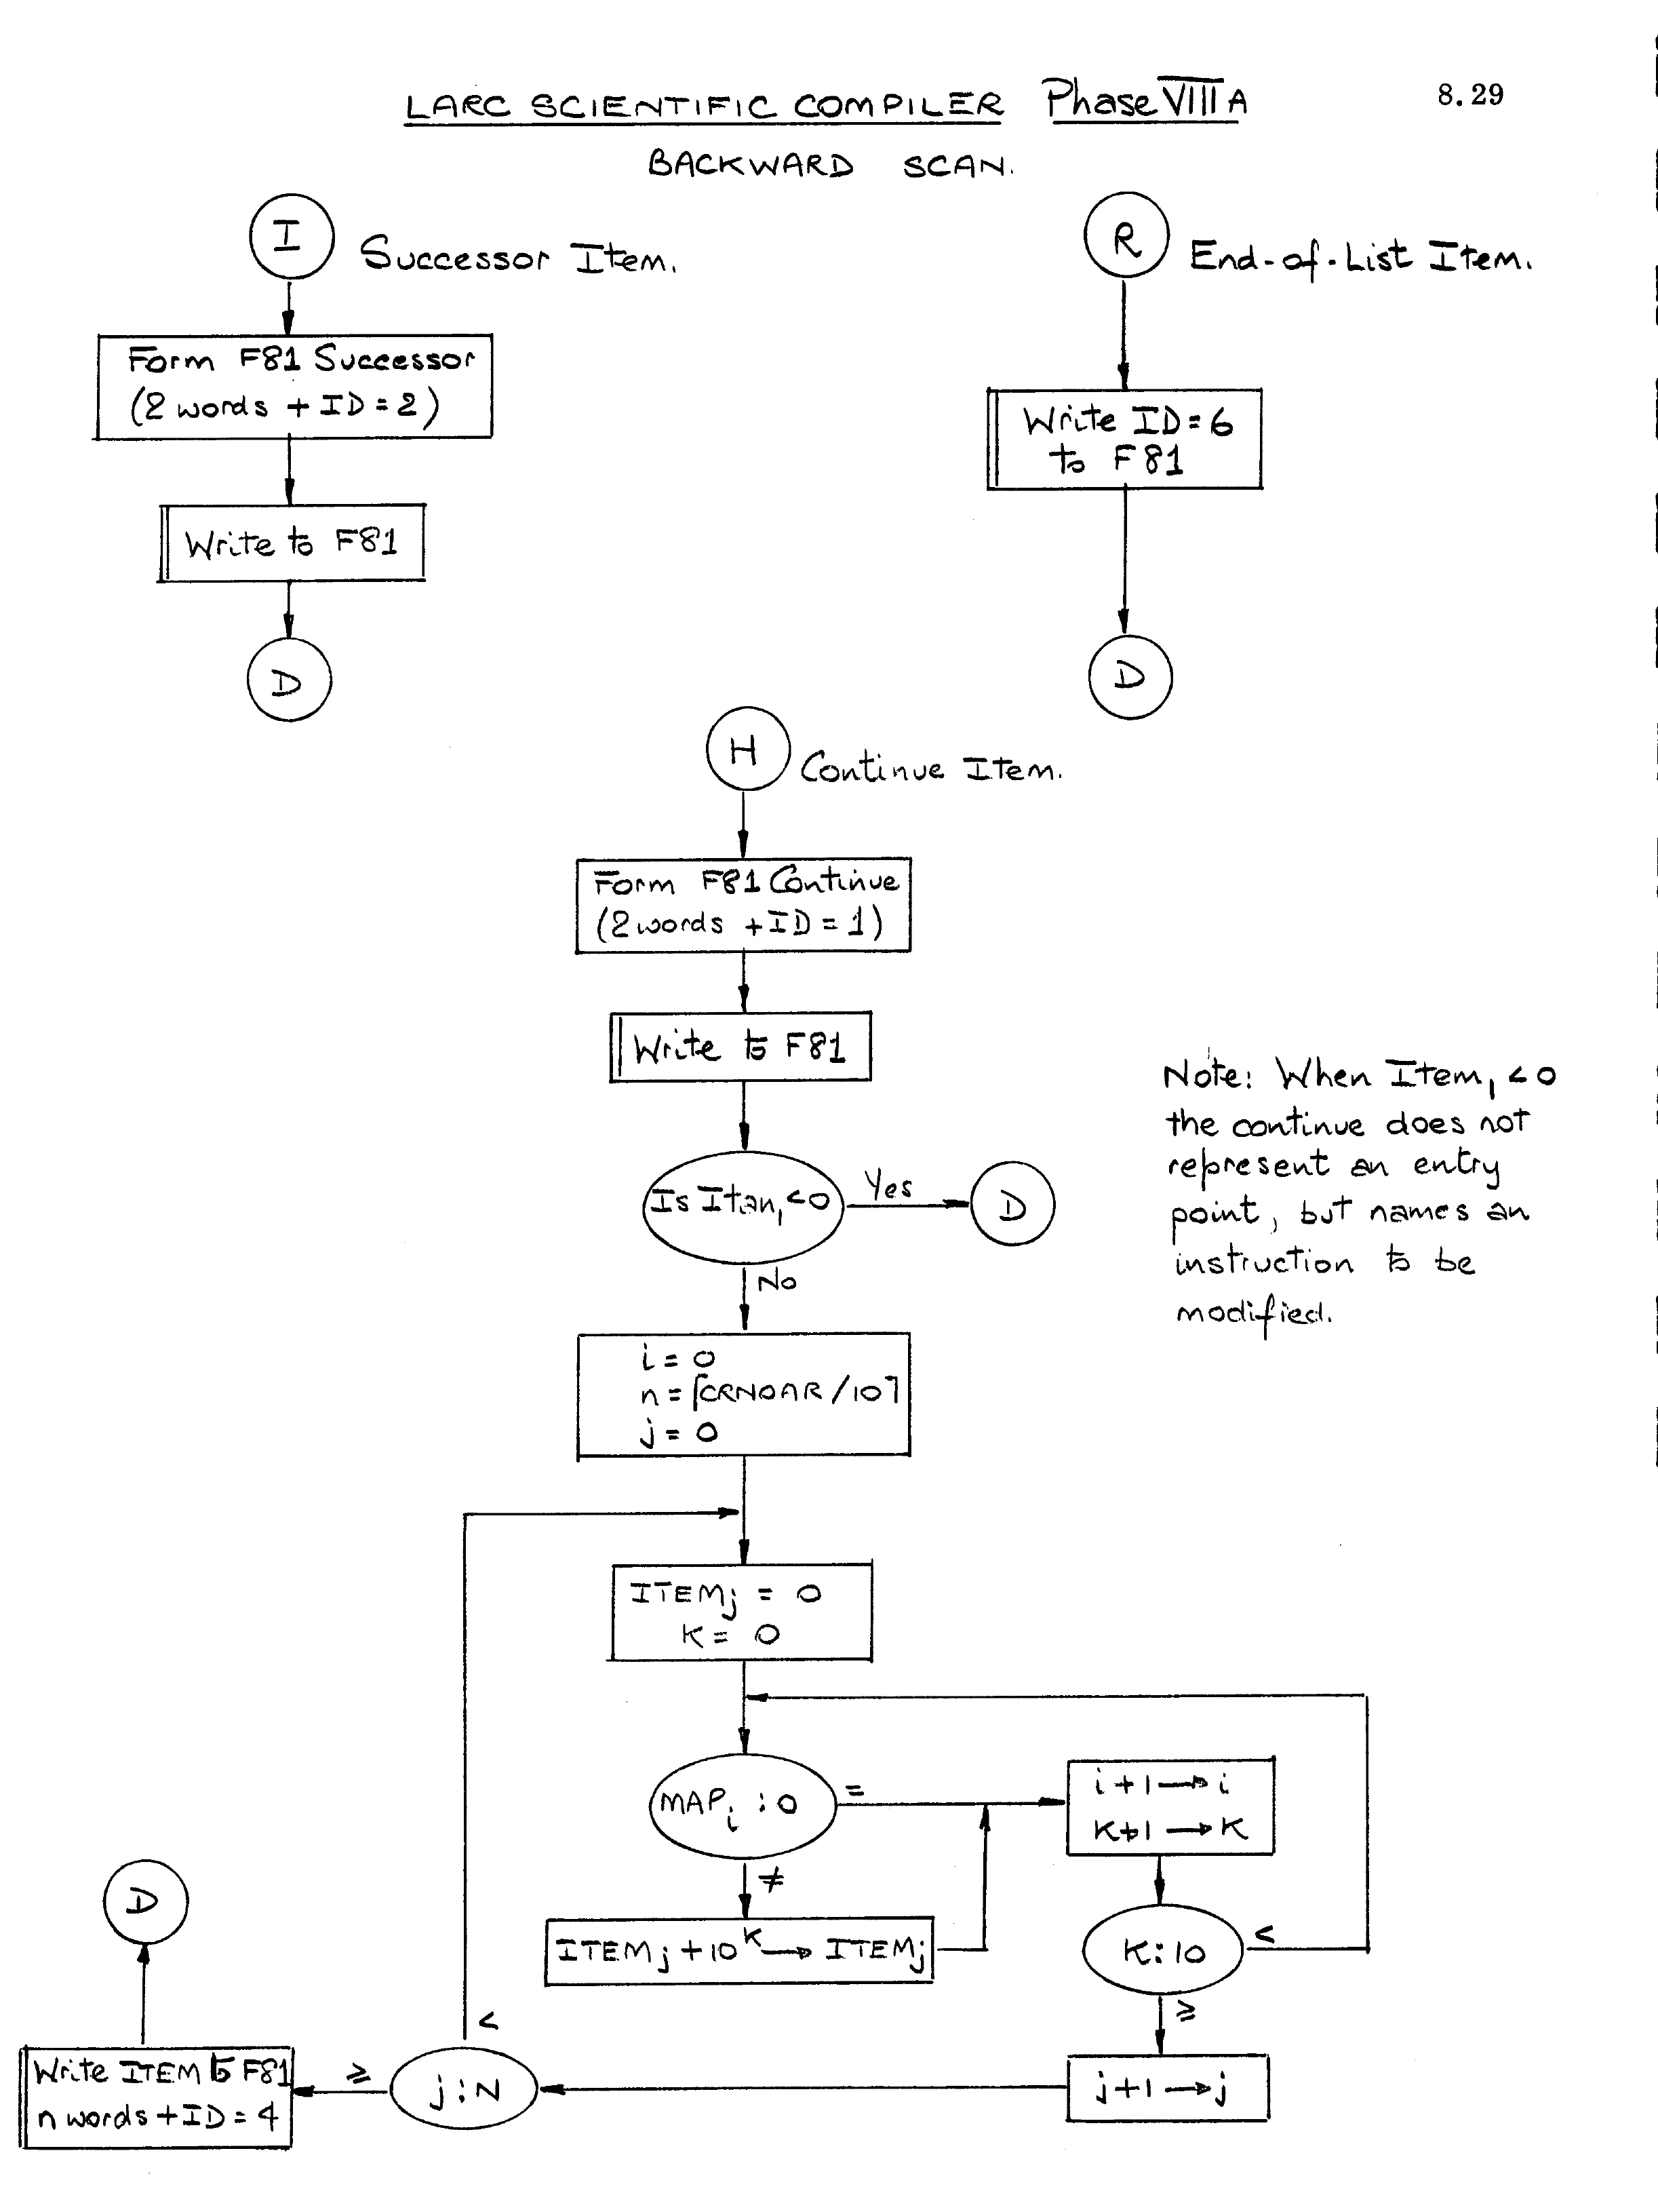 LARC SCIENTIFIC COMPILER Phase VIII A
8.29
BACKWARD SCAN.
I
Successor Item.
Form F81 Successor
(2 words + ID = 2)
Write to F81
D
R
End-of-List Item.
Write ID = 6
to F81
D
H
Continue Item.
Form F81 Continue
(2 words + ID = 1)
Write to F81
Is Item₁ < 0
Yes
D
No
Note: When Item₁ < 0
the continue does not
represent an entry
point, but names an
instruction to be
modified.
i = 0
n = ⌈CRNOAR / 10⌉
j = 0
ITEMj = 0
K = 0
MAPi : 0
=
≠
i + 1 → i
K + 1 → K
ITEMj + 10^K → ITEMj
K : 10
<
≥
j + 1 → j
j : N
<
≥
Write ITEM to F81
n words + ID = 4
D